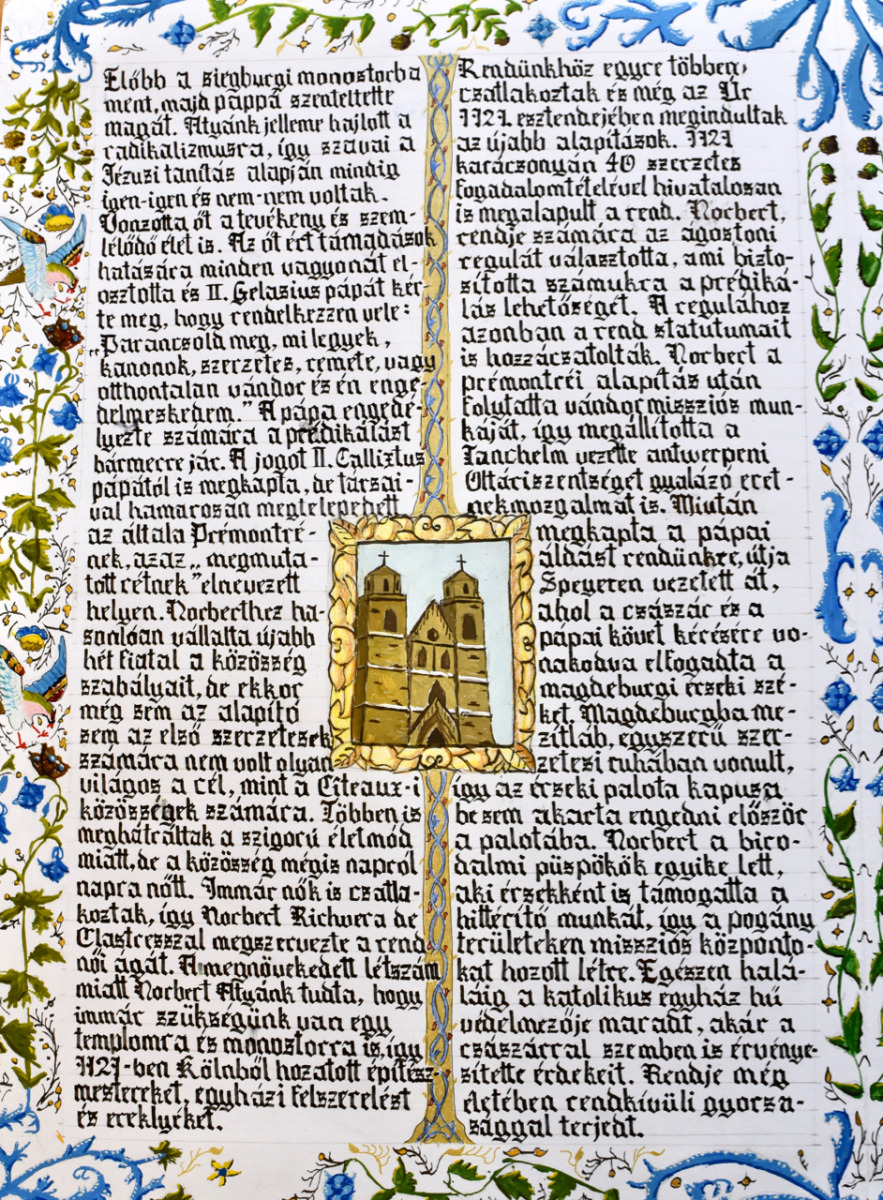 Előbb a siegburgi monostorba
ment, majd pappá szenteltette
magát. Atyánk jelleme hajlott a
radikalizmusra, így szavai a
Jézusi tanítás alapján mindig
igen-igen és nem-nem voltak.
Vonzotta őt a tevékeny és szem-
lélődő élet is. Az őt ért támadások
hatására minden vagyonát el-
osztotta és II. Gelasius pápát kér-
te meg, hogy rendelkezzen vele:
„Parancsold meg, mi legyek,
kanonok, szerzetes, remete, vagy
otthontalan vándor és én enge-
delmeskedem." A pápa engedé-
lyezte számára a prédikálást
bármerre jár. A jogot II. Callixtus
pápától is megkapta, de társai-
val hamarosan megtelepedett
az általa Prémontré-
nek, azaz „megmuta-
tott rétnek" elnevezett
helyen. Norberthez ha-
sonlóan vállalta újabb
hét fiatal a közösség
szabályait, de ekkor
még sem az alapító
sem az első szerzetesek
számára nem volt olyan
világos a cél, mint a Citeaux-i
közösségek számára. Többen is
meghátráltak a szigorú életmód
miatt, de a közösség mégis napról
napra nőtt. Immár nők is csatla-
koztak, így Norbert Richvera de
Clastresszal megszervezte a rend
női ágát. A megnövekedett létszám
miatt Norbert Atyánk tudta, hogy
immár szükségünk van egy
templomra és monostorra is, így
1121-ben Kölnből hozatott építész-
mestereket, egyházi felszerelést
és ereklyéket.
Rendünkhöz egyre többen
csatlakoztak és még az Úr
1121. esztendejében megindultak
az újabb alapítások. 1121
karácsonyán 40 szerzetes
fogadalomtételével hivatalosan
is megalapult a rend. Norbert,
rendje számára az ágostoni
regulát választotta, ami bizto-
sította számukra a prédiká-
lás lehetőségét. A regulához
azonban a rend statútumait
is hozzácsatolták. Norbert a
prémontréi alapítás után
folytatta vándormissziós mun-
káját, így megállította a
Tanchelm vezette antwerpeni
Oltáriszentséget gyalázó eret-
nekmozgalmat is. Miután
megkapta a pápai
áldást rendünkre, útja
Speyeren vezetett át,
ahol a császár és a
pápai követ kérésére vo-
nakodva elfogadta a
magdeburgi érseki szé-
ket. Magdeburgba me-
zítláb, egyszerű szer-
zetesi ruhában vonult,
így az érseki palota kapusa
be sem akarta engedni először
a palotába. Norbert a biro-
dalmi püspökök egyike lett,
aki érsekként is támogatta a
hittérítő munkát, így a pogány
területeken missziós központo-
kat hozott létre. Egészen halá-
láig a katolikus egyház hű
védelmezője maradt, akár a
császárral szemben is érvénye-
sítette érdekeit. Rendje még
életében rendkívüli gyorsa-
sággal terjedt.